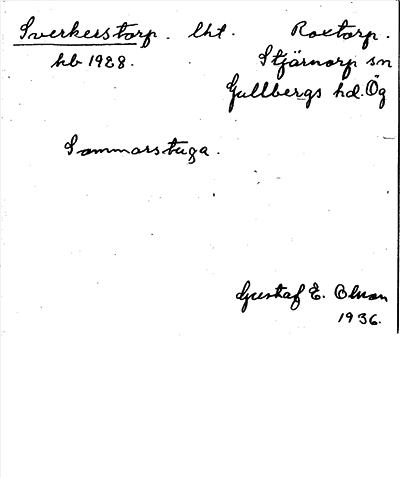 Sverkerstorp. lht. Roxtorp.
hb 1988. Stjärnorp sn
Gullbergs hd. Ög
Sommarstuga.
Gustaf E. Olson
1936.